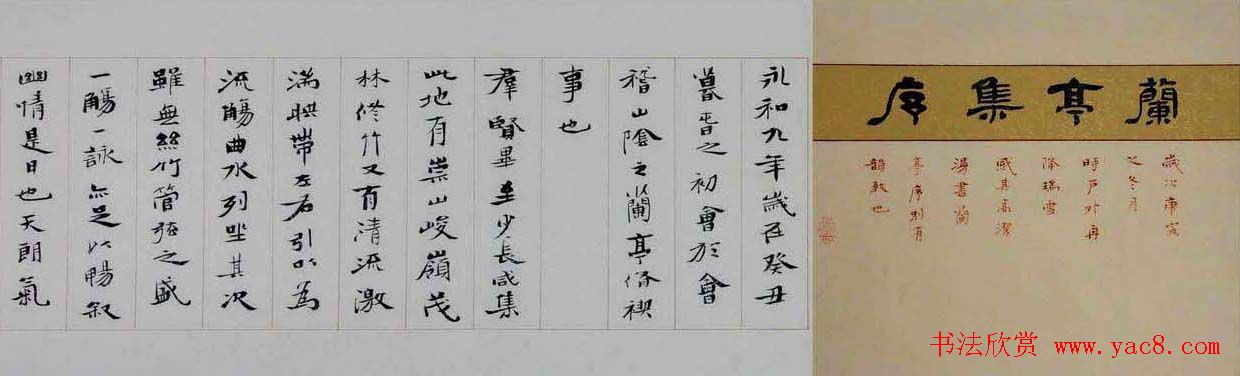 蘭亭集序
歲次庚寅
之冬月
時戶外再
降瑞雪
感其高潔
漫書蘭
亭序別有
韻致也
永和九年歲在癸丑
暮春之初會於會
稽山陰之蘭亭脩禊
事也
羣賢畢至少長咸集
此地有崇山峻嶺茂
林修竹又有清流激
湍映帶左右引以為
流觴曲水列坐其次
雖無絲竹管弦之盛
一觴一詠亦足以暢叙
幽情是日也天朗氣
书法欣赏 www.yac8.com